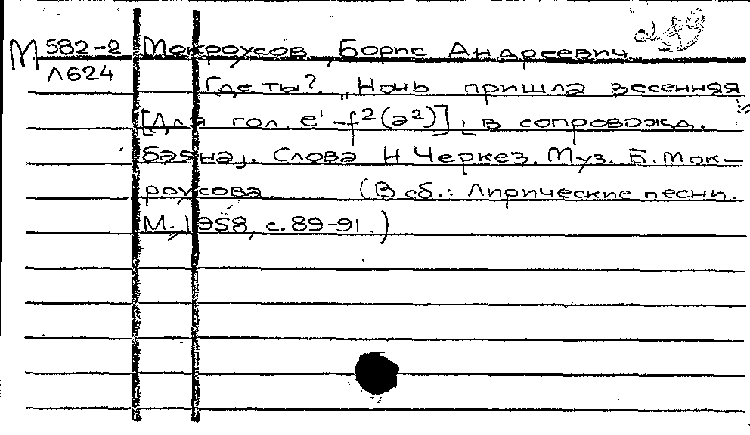 М 582-2 Мокроусов, Борис Андреевич
Л624
Где ты? "Ночь пришла весенняя
[Для гол. e¹-f²(a²)], [в сопровожд.
баяна]. Слова Н. Черкез. Муз. Б. Мок-
роусова (В сб.: Лирические песни.
М., 1958, с. 89-91.)